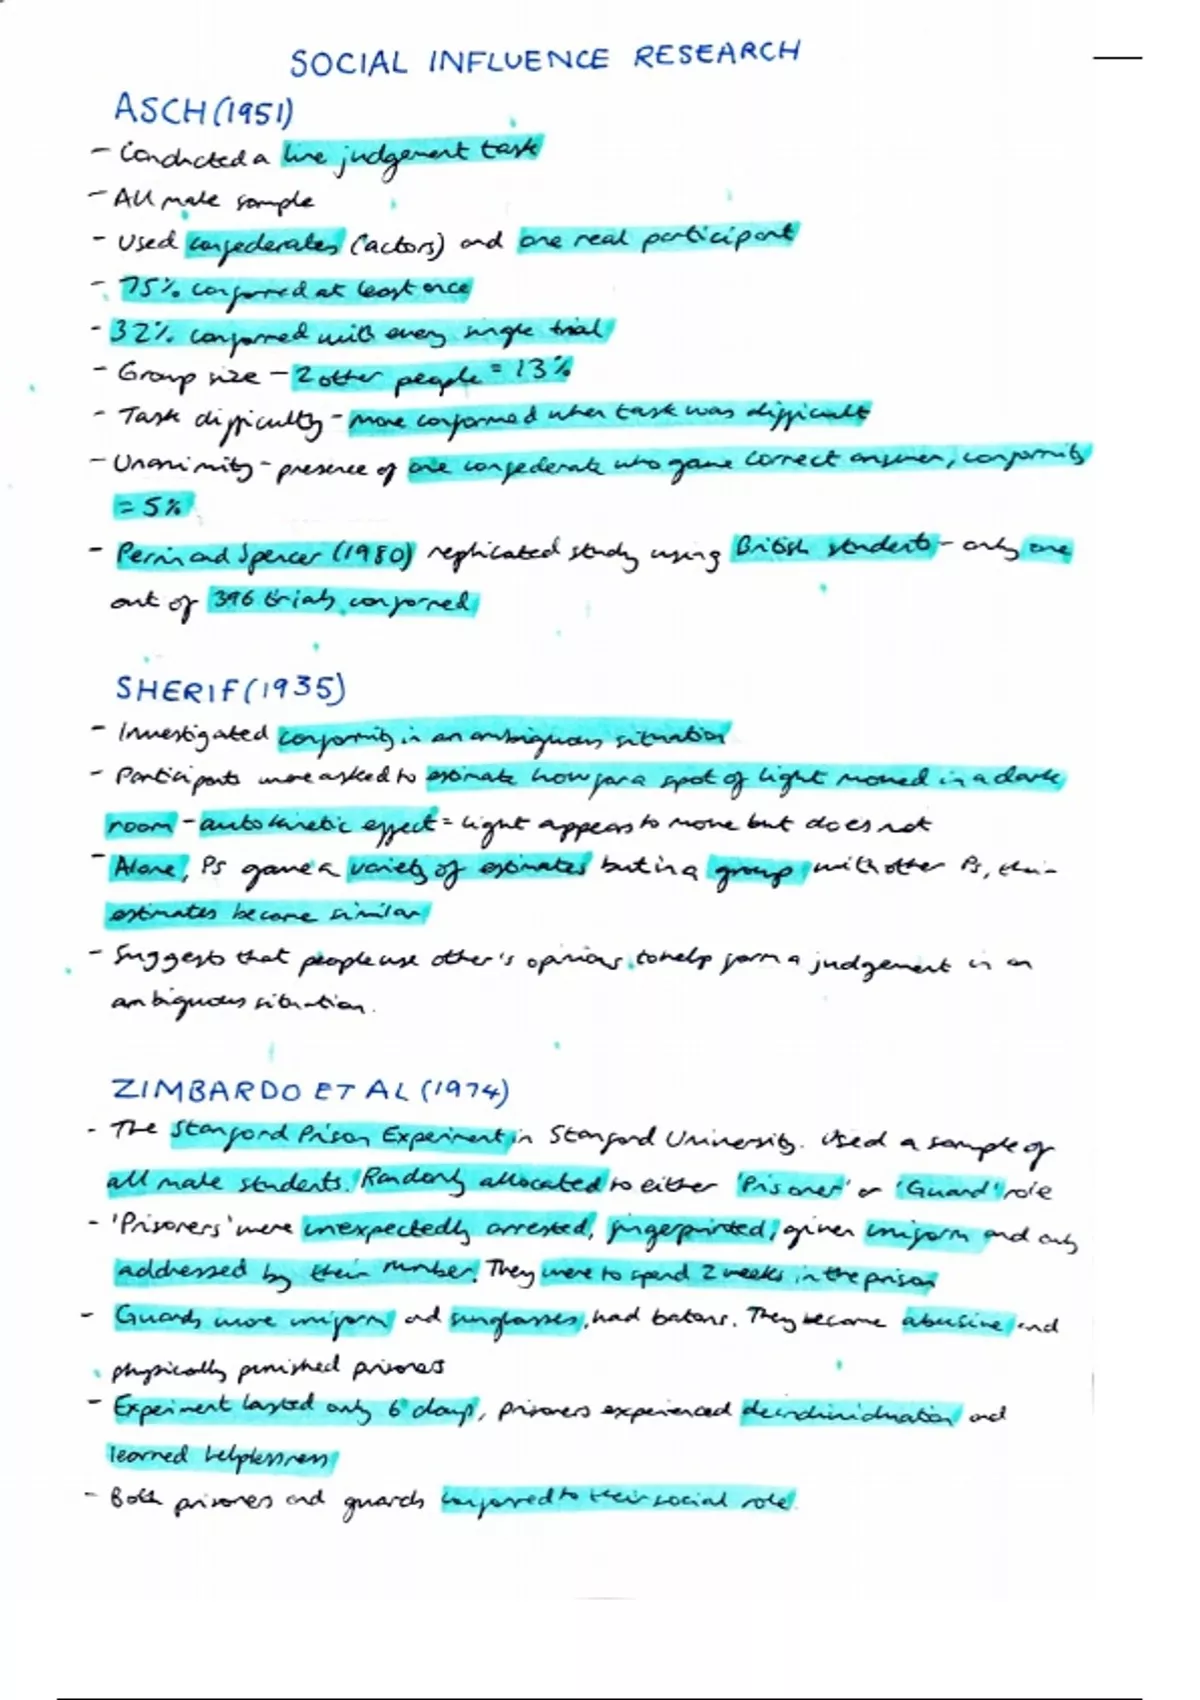 SOCIAL INFLUENCE RESEARCH
ASCH (1951)
- Conducted a line judgement task
- All male sample
- Used confederates (actors) and one real participant
- 75% conformed at least once
- 32% conformed with every single trial
- Group size - 2 other people = 13%
- Task difficulty - more conformed when task was difficult
- Unanimity - presence of one confederate who gave correct answer, conformity
= 5%
- Perrin and Spencer (1980) replicated study using British students - only one
out of 396 trials conformed
SHERIF (1935)
- Investigated conformity in an ambiguous situation
- Participants were asked to estimate how far a spot of light moved in a dark
room - autokinetic effect = light appears to move but does not
- Alone, Ps gave a variety of estimates but in a group with other Ps, their
estimates became similar
- Suggests that people use other's opinions to help form a judgement in an
ambiguous situation.
ZIMBARDO ET AL (1974)
- The Stanford Prison Experiment in Stanford University. Used a sample of
all male students. Randomly allocated to either 'Prisoner' or 'Guard' role
- 'Prisoners' were unexpectedly arrested, fingerprinted, given uniform and only
addressed by their number. They were to spend 2 weeks in the prison
- Guards wore uniform and sunglasses, had batons. They became abusive and
physically punished prisoners
- Experiment lasted only 6 days, prisoners experienced deindividuation and
learned helplessness
- Both prisoners and guards conformed to their social role.